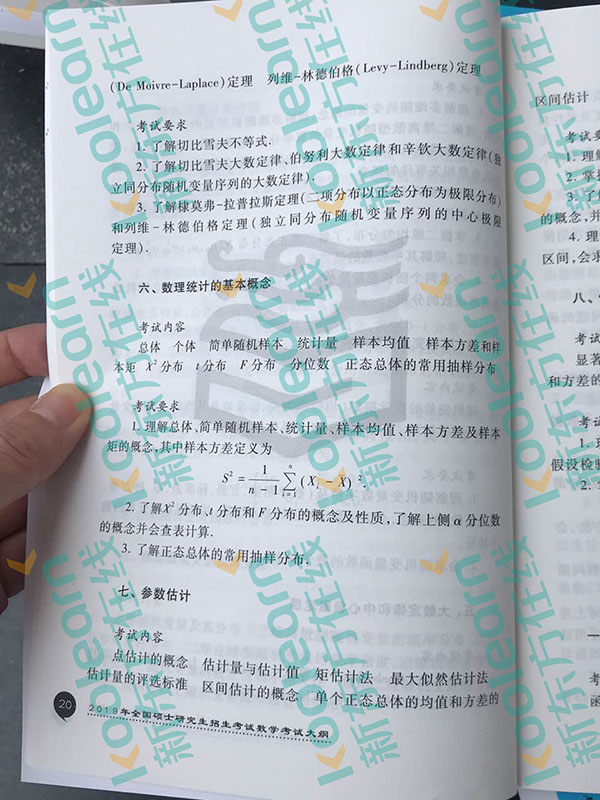 (De Moivre-Laplace)定理 列维-林德伯格(Levy-Lindberg)定理
考试要求
1. 了解切比雪夫不等式.
2. 了解切比雪夫大数定律、伯努利大数定律和辛钦大数定律(独
立同分布随机变量序列的大数定律).
3. 了解棣莫弗-拉普拉斯定理(二项分布以正态分布为极限分布)
和列维-林德伯格定理(独立同分布随机变量序列的中心极限
定理).
六、数理统计的基本概念
考试内容
总体 个体 简单随机样本 统计量 样本均值 样本方差和样
本矩 X²分布 t分布 F分布 分位数 正态总体的常用抽样分布
考试要求
1. 理解总体、简单随机样本、统计量、样本均值、样本方差及样本
矩的概念,其中样本方差定义为
S² = 1/(n-1) ∑ᵢ₌₁ⁿ (Xᵢ - X)².
2. 了解X²分布、t分布和F分布的概念及性质,了解上侧α分位数
的概念并会查表计算.
3. 了解正态总体的常用抽样分布.
七、参数估计
考试内容
点估计的概念 估计量与估计值 矩估计法 最大似然估计法
估计量的评选标准 区间估计的概念 单个正态总体的均值和方差的
20 2019年全国硕士研究生招生考试数学考试大纲
区间估计
1. 理解
2. 掌
的概念,并
4. 理
区间,会求
八、
考试
显著
和方差的
1. 理
假设检验
2.
koolearn 新东方在线